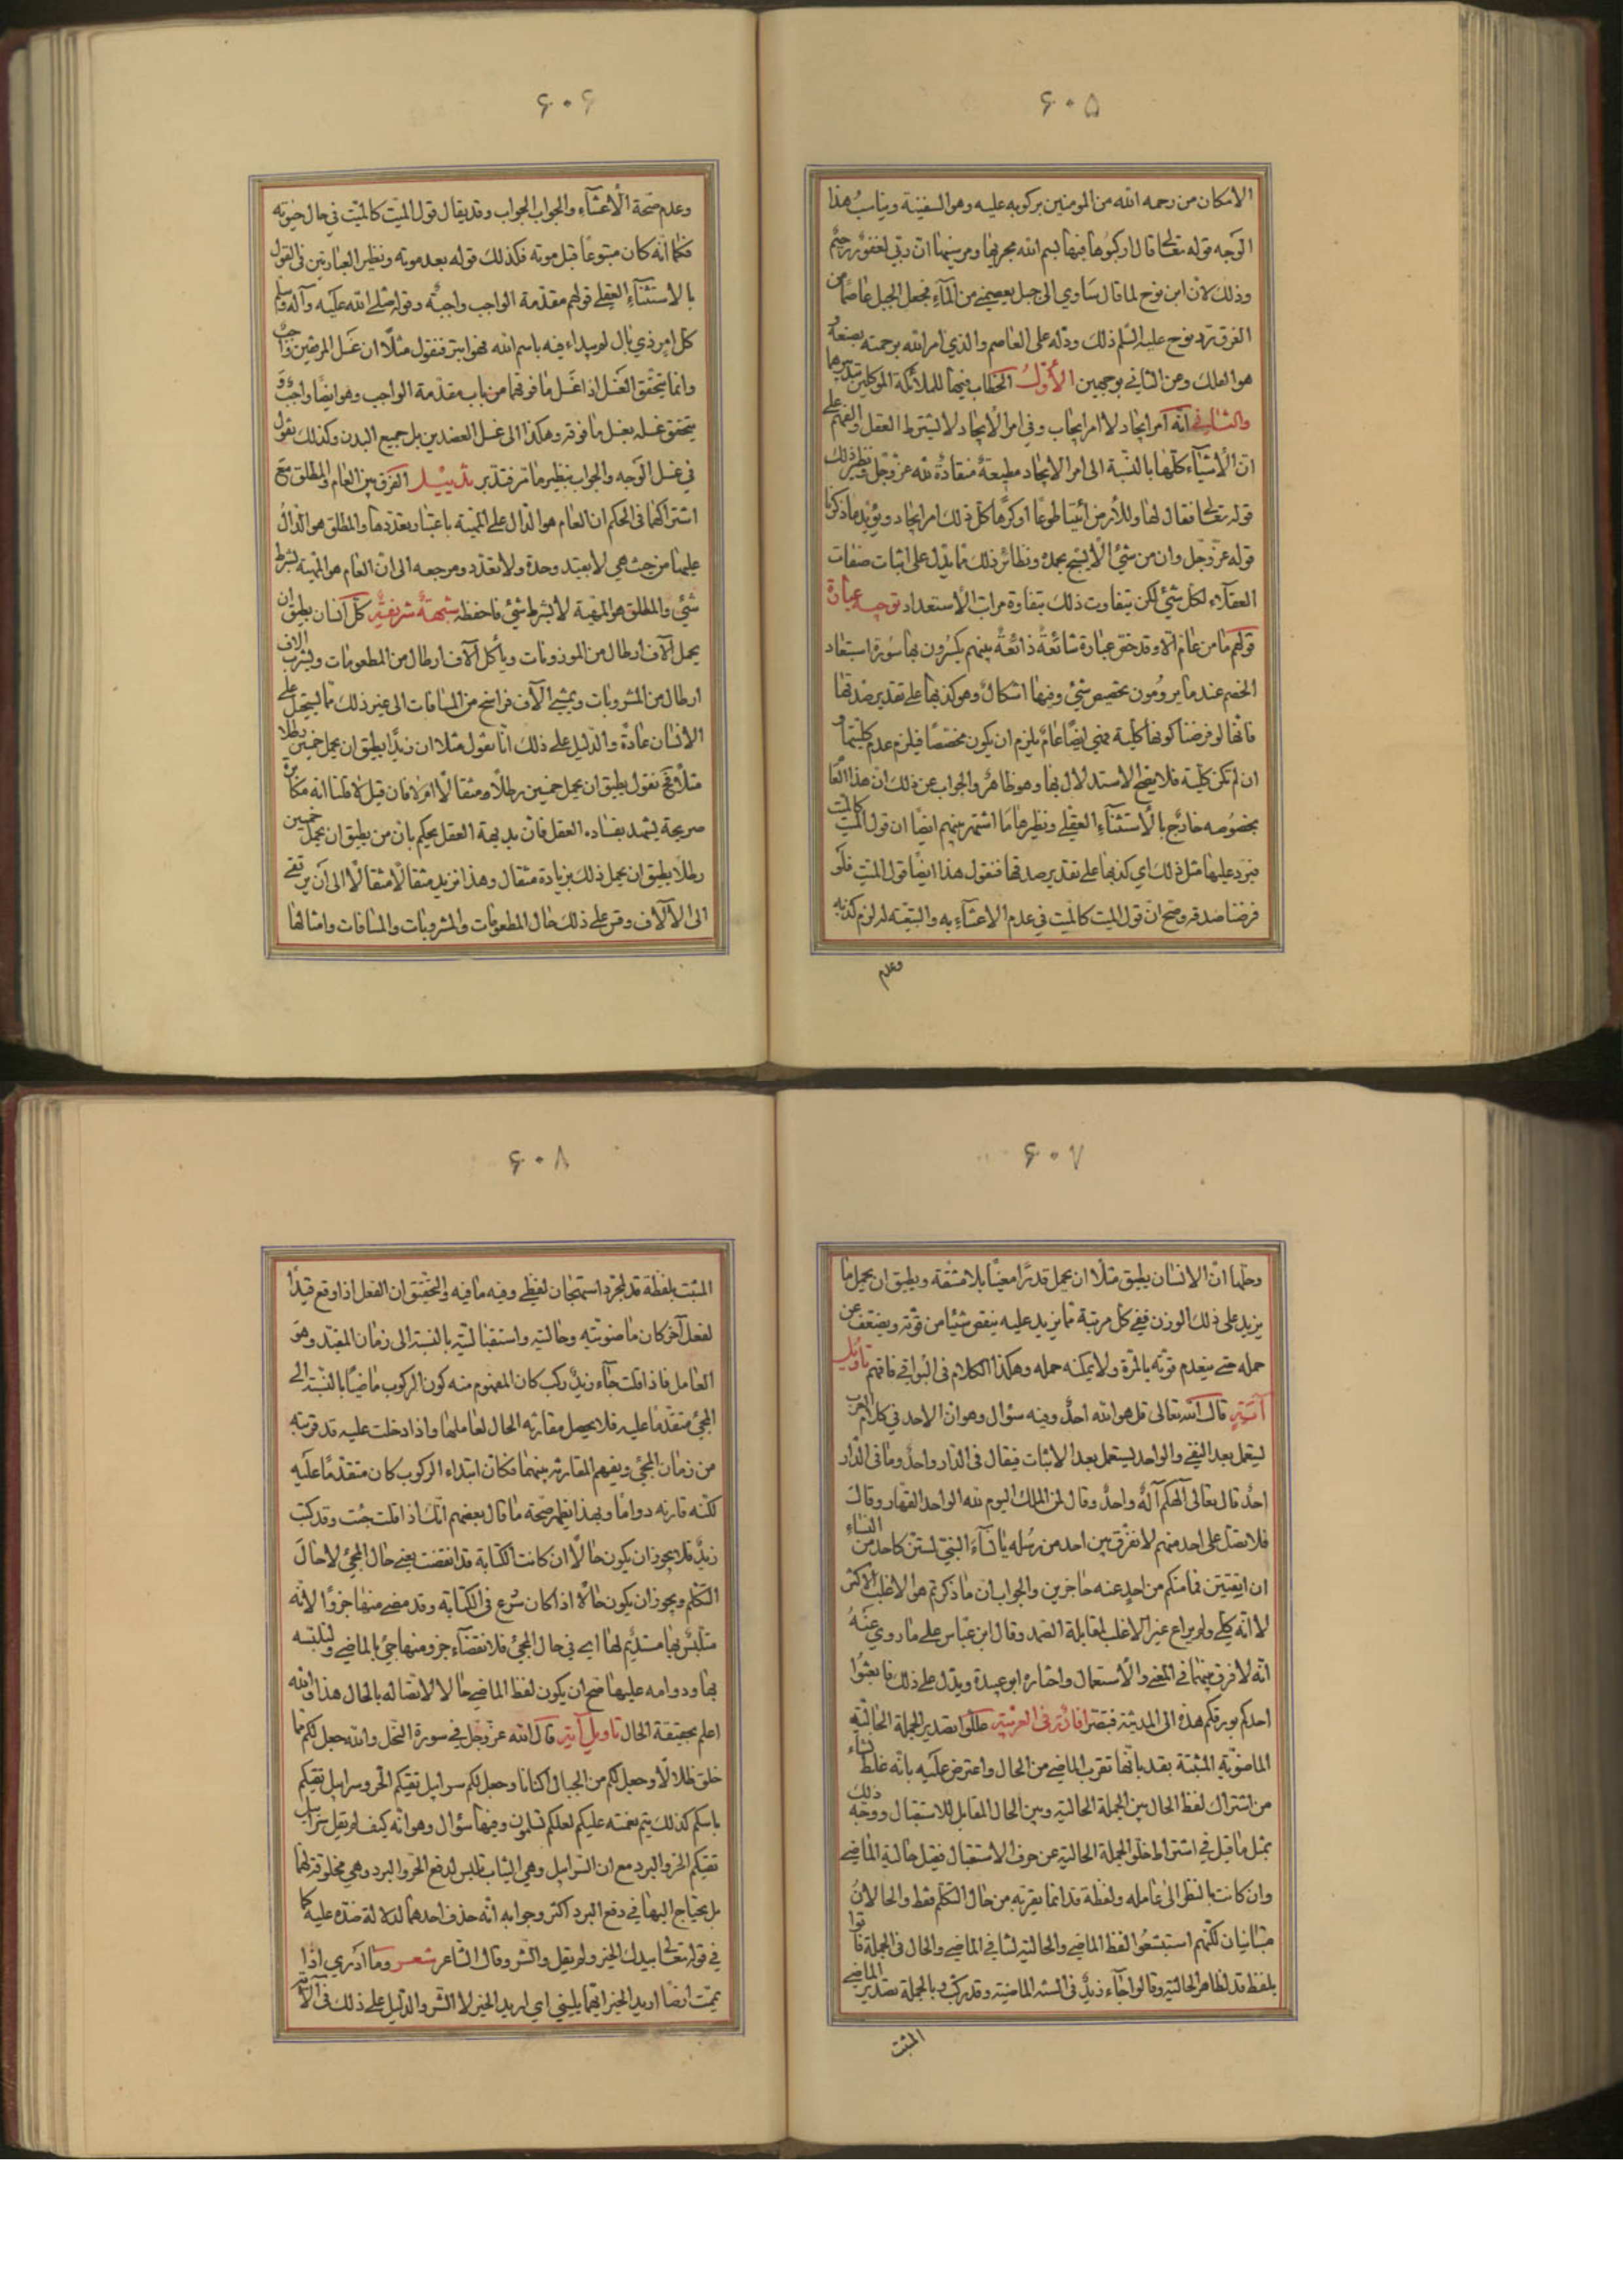 ۶۰۵
الامكان من رحمه الله من المومنين بركوبه عليه وهو السفينة ويناسب هذا
الوجه قوله تعالى قال اركبوها فيها بسم الله مجريها ومرسيها ان ربي لغفور رحيم
وذلك لان ابن نوح لما قال ساوي الى جبل يعصمني من المآء فجعل الجبل عاصما من
الغرق ترد نوح عليه السلم ذلك ودله على العاصم والذي امر الله برحمته بصنعه و
هو الفلك وعن الثاني بوجهين الأول الخطاب فيها للملائكة الموكلين بتدبيرها
والثاني انه امر ايجاد لا امر ايجاب وفي امر الايجاد لا يشترط العقل والفهم على
ان الاشياء كلها بالنسبة الى امر الايجاد مطيعة منقادة لله عز وجل ونظير ذلك
قوله تعالى فقال لها وللأرض ائتيا طوعا او كرها كل ذلك امر ايجاد ويؤيد ما ذكرنا
قوله عز وجل وان من شئ الا يسبح بحمده ونظائر ذلك مما يدل على اثبات صفات
العقلاء لكل شئ لكن يتفاوت ذلك بتفاوة مراتب الاستعداد توجيه عبارة
قولهم ما من عام الا وقد خص عبارة شائعة ذائعة بينهم يكسرون بها سورة استبعاد
الخصم عند ما يرومون تخصيص شئ وفيها اشكال وهو كذبها على تقدير صدقها
فانها لو فرضنا كونها كلية فهي ايضا عام يلزم ان يكون مخصصا فيلزم عدم كليتها و
ان لم تكن كلية فلا يصح الاستدلال بها وهو ظاهر والجواب عن ذلك ان هذا العام
بخصوصه خارج بالاستثناء العقلي ونظيرها ما اشتهر بينهم ايضا ان قول الميت كالميت
فيرد عليها مثل ذلك اي كذبها على تقدير صدقها فنقول هذا ايضا قول الميت فلو
فرضنا صدقه وصح ان قول الميت كالميت في عدم الاعتناء به والتبعية له لزم كذبه
وعدم
۶۰۶
وعدم صحة الاعتناء والجواب الجواب وقد يقال قول الميت كالميت في حال حيوته
فكما انه كان متبوعا قبل موته فكذلك قوله بعد موته ونظير العبارتين في القول
بالاستثناء العقلي قولهم مقدمة الواجب واجبة وقوله صلى الله عليه وآله وسلم
كل امر ذي بال لم يبداء فيه باسم الله فهو ابتر فنقول مثلا ان غسل المرفقين واجب
وانما يتحقق الغسل اذا غسل ما فوقهما من باب مقدمة الواجب وهو ايضا واجب و
يتحقق غسله بغسل ما فوقه وهكذا الى غسل العضدين بل جميع البدن وكذلك نقول
في غسل الوجه والجواب بنظير ما مر فتدبر تذييل الفرق بين العام والمطلق مع
اشتراكهما في الحكم ان العام هو الدال على المهية باعتبار تعددها والمطلق هو الدال
عليها من حيث هي لا بقيد وحدة ولا تعدد ومرجعه الى ان العام هو المهية بشرط
شئ والمطلق هو المهية لا بشرط شئ فاحفظه شبهة شريفة كل انسان يطيق ان
يحمل آلاف ارطال من الموزونات ويأكل آلاف ارطال من المطعومات ويشرب الاف
ارطال من المشروبات ويمشي آلاف فراسخ من المسافات الى غير ذلك مما يستحيل على
الانسان عادة والدليل على ذلك انا نقول مثلا ان زيدا يطيق ان يحمل خمسين رطلا
مثلا فح نقول يطيق ان يحمل خمسين رطلا ومثقالا ام لا فان قيل لا قلنا انه مكابرة
صريحة يشهد بفساده العقل فان بديهة العقل يحكم بان من يطيق ان يحمل خمسين
رطلا يطيق ان يحمل ذلك بزيادة مثقال وهذا نزيد مثقالا مثقالا الى ان يرتقي
الى الآلاف وقس على ذلك حال المطعومات والمشروبات والمسافات وامثالها
۶۰۷
وحلها ان الانسان يطيق مثلا ان يحمل قدرا معينا بلا مشقة ويطيق ان يحمل ما
يزيد على ذلك الوزن ففي كل مرتبة مما يزيد عليه ينقص شئيا من قوته ويضعف عن
حمله حتى ينعدم قوته بالمرة ولا يمكنه حمله وهكذا الكلام في البواقي فافهم تأويل
آية قال الله تعالى قل هو الله احد وفيه سؤال وهو ان الاحد في كلام العرب
يستعمل بعد النفي والواحد يستعمل بعد الاثبات فيقال في الدار واحد وما في الدار
احد قال تعالى الهكم آله واحد وقال لمن الملك اليوم لله الواحد القهار وقال
فلا تصل على احد منهم لا نفرق بين احد من رسله يا نسآء النبي لستن كاحد من النساء
ان اتقيتن فما منكم من احد عنه حاجزين والجواب ان ما ذكرتم هو الاغلب الاكثر
لا انه كلي ولم يراع غير الاغلب لمقابلة الصمد وقال ابن عباس على ما روي عنه
انه لا فرق بينهما في المعنى والاستعمال واختاره ابو عبيدة ويدل على ذلك فابعثوا
احدكم بورقكم هذه الى المدينة فتبصر افادة في العربية عللوا تصدير الجملة الحالية
الماضوية المثبتة بقد بانها تقرب الماضي من الحال واعترض عليه بانه غلط نشاء
من اشتراك لفظ الحال بين الجملة الحالية وبين الحال المقابل للاستقبال ووجه ذلك
بمثل ما قيل في اشتراط خلو الجملة الحالية عن حرف الاستقبال فقيل حالية الماضي
وان كانت بالنظر الى عامله ولفظة قد انما يقربه من حال التكلم فقط والحالان
متباينان لكنهم استبشعوا لفظ الماضي والحالية لتنافي الماضي والحال في الجملة فأتوا
بلفظ قد لظاهر الحالية وقالوا جآء زيد في السنة الماضية وقد ركب وبالجملة تصدير الماضي
المثبت
۶۰۸
المثبت بلفظة قد لمجرد استهجان لفظي وفيه ما فيه والتحقيق ان الفعل اذا وقع قيدا
لفعل آخر كان ماضويته وحاليته واستقباليته بالنسبة الى زمان المقيد وهو
العامل فاذا قلت جآء زيد ركب كان المفهوم منه كون الركوب ماضيا بالنسبة الى
المجئ متقدما عليه فلا يحصل مقارنة الحال لعاملها واذا دخلت عليه قد قربته
من زمان المجئ ويفهم المقارنة بينهما فكان ابتداء الركوب كان متقدما عليه
لكنه قارنه دواما وبهذا يظهر صحة ما قال بعضهم انك اذا قلت جئت وقد كتب
زيد فلا يجوز ان يكون حالا ان كانت الكتابة قد انقضت يعني حال المجئ لا حال
التكلم ويجوز ان يكون حالا اذا كان شرع في الكتابة وقد مضى منها جزؤ الا انه
متلبس بها مستديم لها اي في حال المجئ فلانقضاء جزء منها جئ بالماضي ولتلبسه
بها ودوامه عليها صح ان يكون لفظ الماضي حالا لاتصاله بالحال هذا والله
اعلم بحقيقة الحال تاويل آية قال الله عز وجل في سورة النحل والله جعل لكم مما
خلق ظلالا وجعل لكم من الجبال اكنانا وجعل لكم سرابيل تقيكم الحر وسرابيل تقيكم
باسكم كذلك يتم نعمته عليكم لعلكم تسلمون وفيها سؤال وهو انه كيف لم يقل سرابيل
تقيكم الحر والبرد مع ان السرابيل وهي الثياب تلبس لدفع الحر والبرد وهي مخلوقة لهما
بل يحتاج اليها في دفع البرد اكثر وجوابه انه حذف احدهما لدلالة ضده عليه كما
في قوله تعالى بيدك الخير ولم يقل والشر وقال الشاعر شعر وما ادري اذا
يممت ارضا اريد الخير ايهما يليني اي اريد الخير لا الشر والدليل على ذلك في الآية